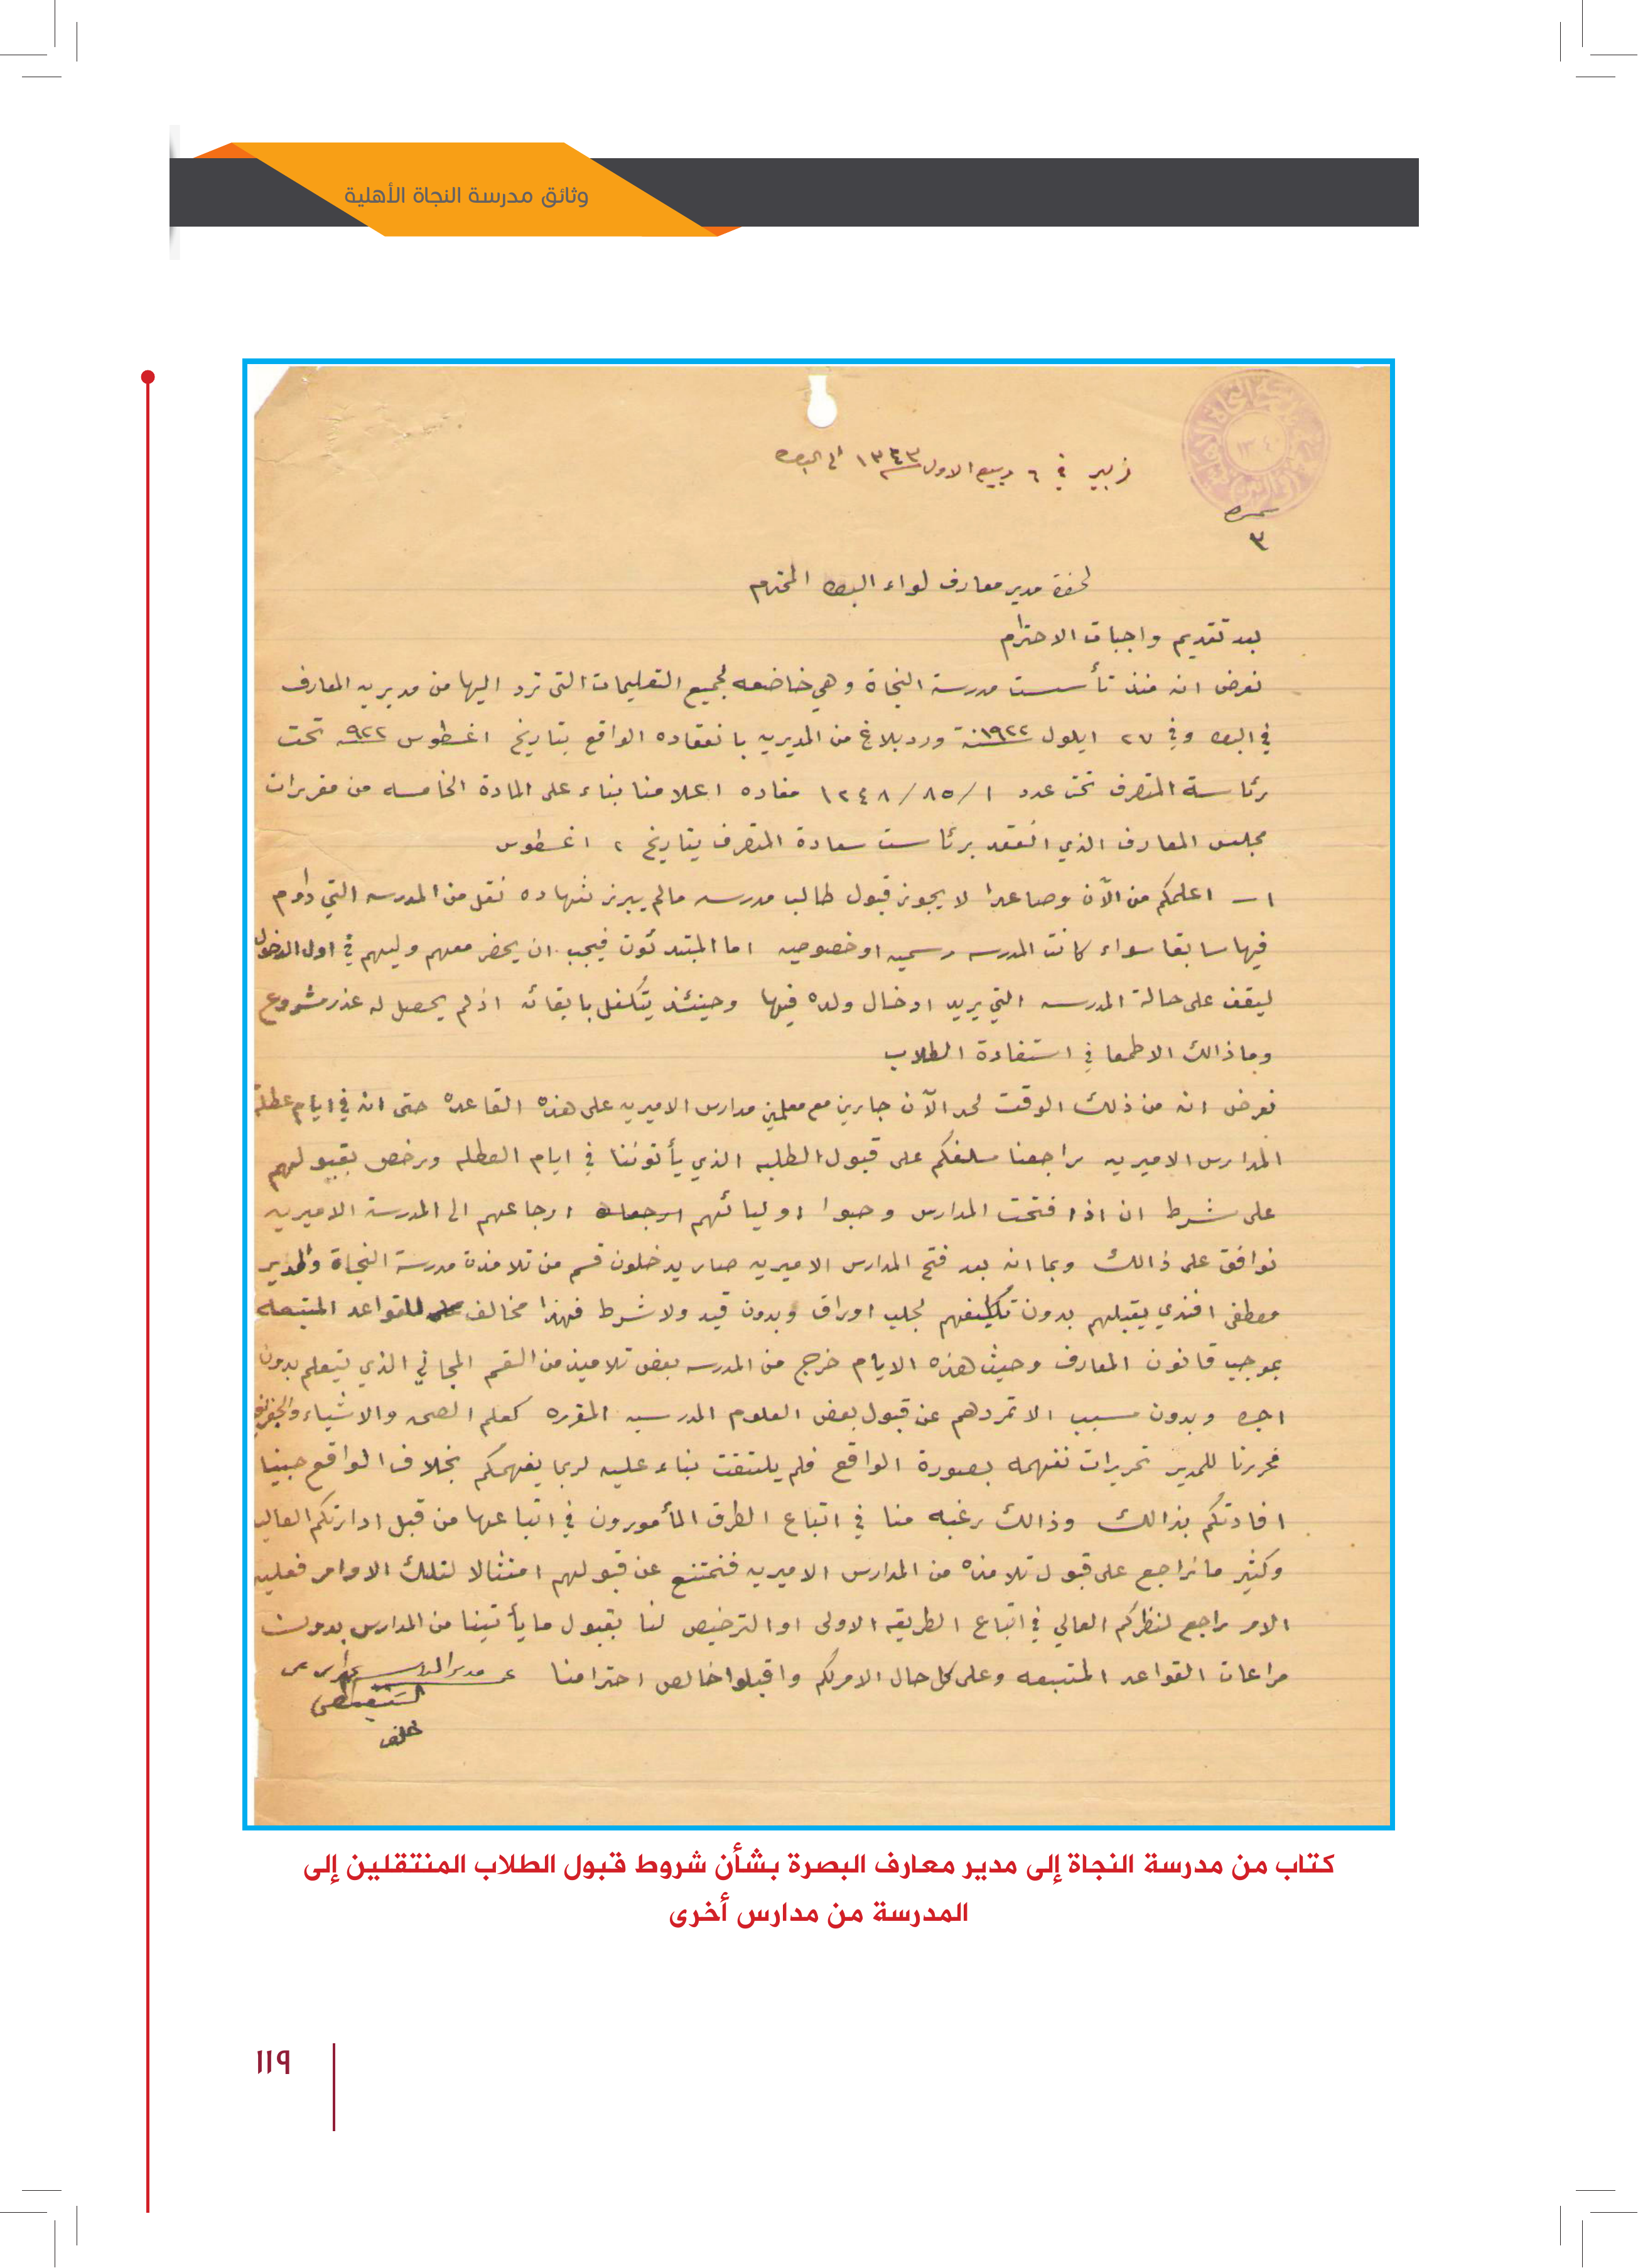 وثائق مدرسة النجاة الأهلية
زبير في ٦ ربيع الاول ١٣٤٣ الى البصره
نمره
٣
لحضرة مدير معارف لواء البصره المحترم
بعد تقديم واجبات الاحترام
نعرض انه منذ تأسست مدرسة النجاة وهي خاضعه لجميع التعليمات التي ترد اليها من مديريه المعارف
في البصره وفي ٢٧ ايلول سنة ١٩٢٢ ورد بلاغ من المديريه بانعقاده الواقع بتاريخ اغسطوس ٩٢٢ تحت
رئاسة المتصرف تحت عدد ١/ ٨٥/ ١٢٤٨ مفاده اعلامنا بناء على المادة الخامسه من مقررات
مجلس المعارف الذي انعقد برئاست سعادة المتصرف بتاريخ ٢ اغسطوس
١ـ اعلمكم من الآن وصاعدا لا يجوز قبول طالب مدرسه مالم يبرز شهاده نقل من المدرسه التي داوم
فيها سابقا سواء كانت المدرسه رسميه او خصوصيه اما المبتدئون فيجب ان يحضر معهم وليهم في اول الدخول
ليقف على حالة المدرسه التي يريد ادخال ولده فيها وحينئذ يتكفل بابقائه اذ لم يحصل له عذر مشروع
وما ذالك الا طمعا في استفادة الطلاب
نعرض انه من ذلك الوقت لحد الآن جارين مع معلمين مدارس الاميريه على هذه القاعده حتى انه في ايام عطلة
المدارس الاميريه راجعنا سلفكم على قبول الطلبه الذي يأتوننا في ايام العطله ورخص بقبولهم
على شرط ان اذا فتحت المدارس وحبوا اوليائهم ارجاعهم الى المدرسة الاميريه
نوافق على ذالك وبما انه بعد فتح المدارس الاميريه صار يدخلون قسم من تلامذة مدرسة النجاة والمدير
مصطفى افندي يقبلهم بدون تكليفهم لجلب اوراق وبدون قيد ولا شرط فهذا مخالف للقواعد المتبعه
بموجب قانون المعارف وحيث هذه الايام خرج من المدرسه بعض تلاميذ من القسم المجاني الذي يتعلم بدون
اجره وبدون سبب الا تمردهم عن قبول بعض العلوم المدرسيه المقرره كعلم الصحه والاشياء والجغرافيه
فحررنا للمدير تحريرات نفهمه بصورة الواقع فلم يلتفت بناء عليه لربما يفهمكم بخلاف الواقع حبينا
افادتكم بذالك وذالك رغبه منا في اتباع الطرق المأمورون في اتباعها من قبل ادارتكم العاليه
وكثير ما نراجع على قبول تلامذه من المدارس الاميريه فنمتنع عن قبولهم امتثالا لتلك الاوامر فعليه
الامر راجع لنظركم العالي في اتباع الطريقه الاولى او الترخيص لنا بقبول ما يأتينا من المدارس بدون
مراعات القواعد المتبعه وعلى كل حال الامر لكم واقبلوا خالص احترامنا عن مدير
خلف
كتاب من مدرسة النجاة إلى مدير معارف البصرة بشأن شروط قبول الطلاب المنتقلين إلى
المدرسة من مدارس أخرى
١١٩